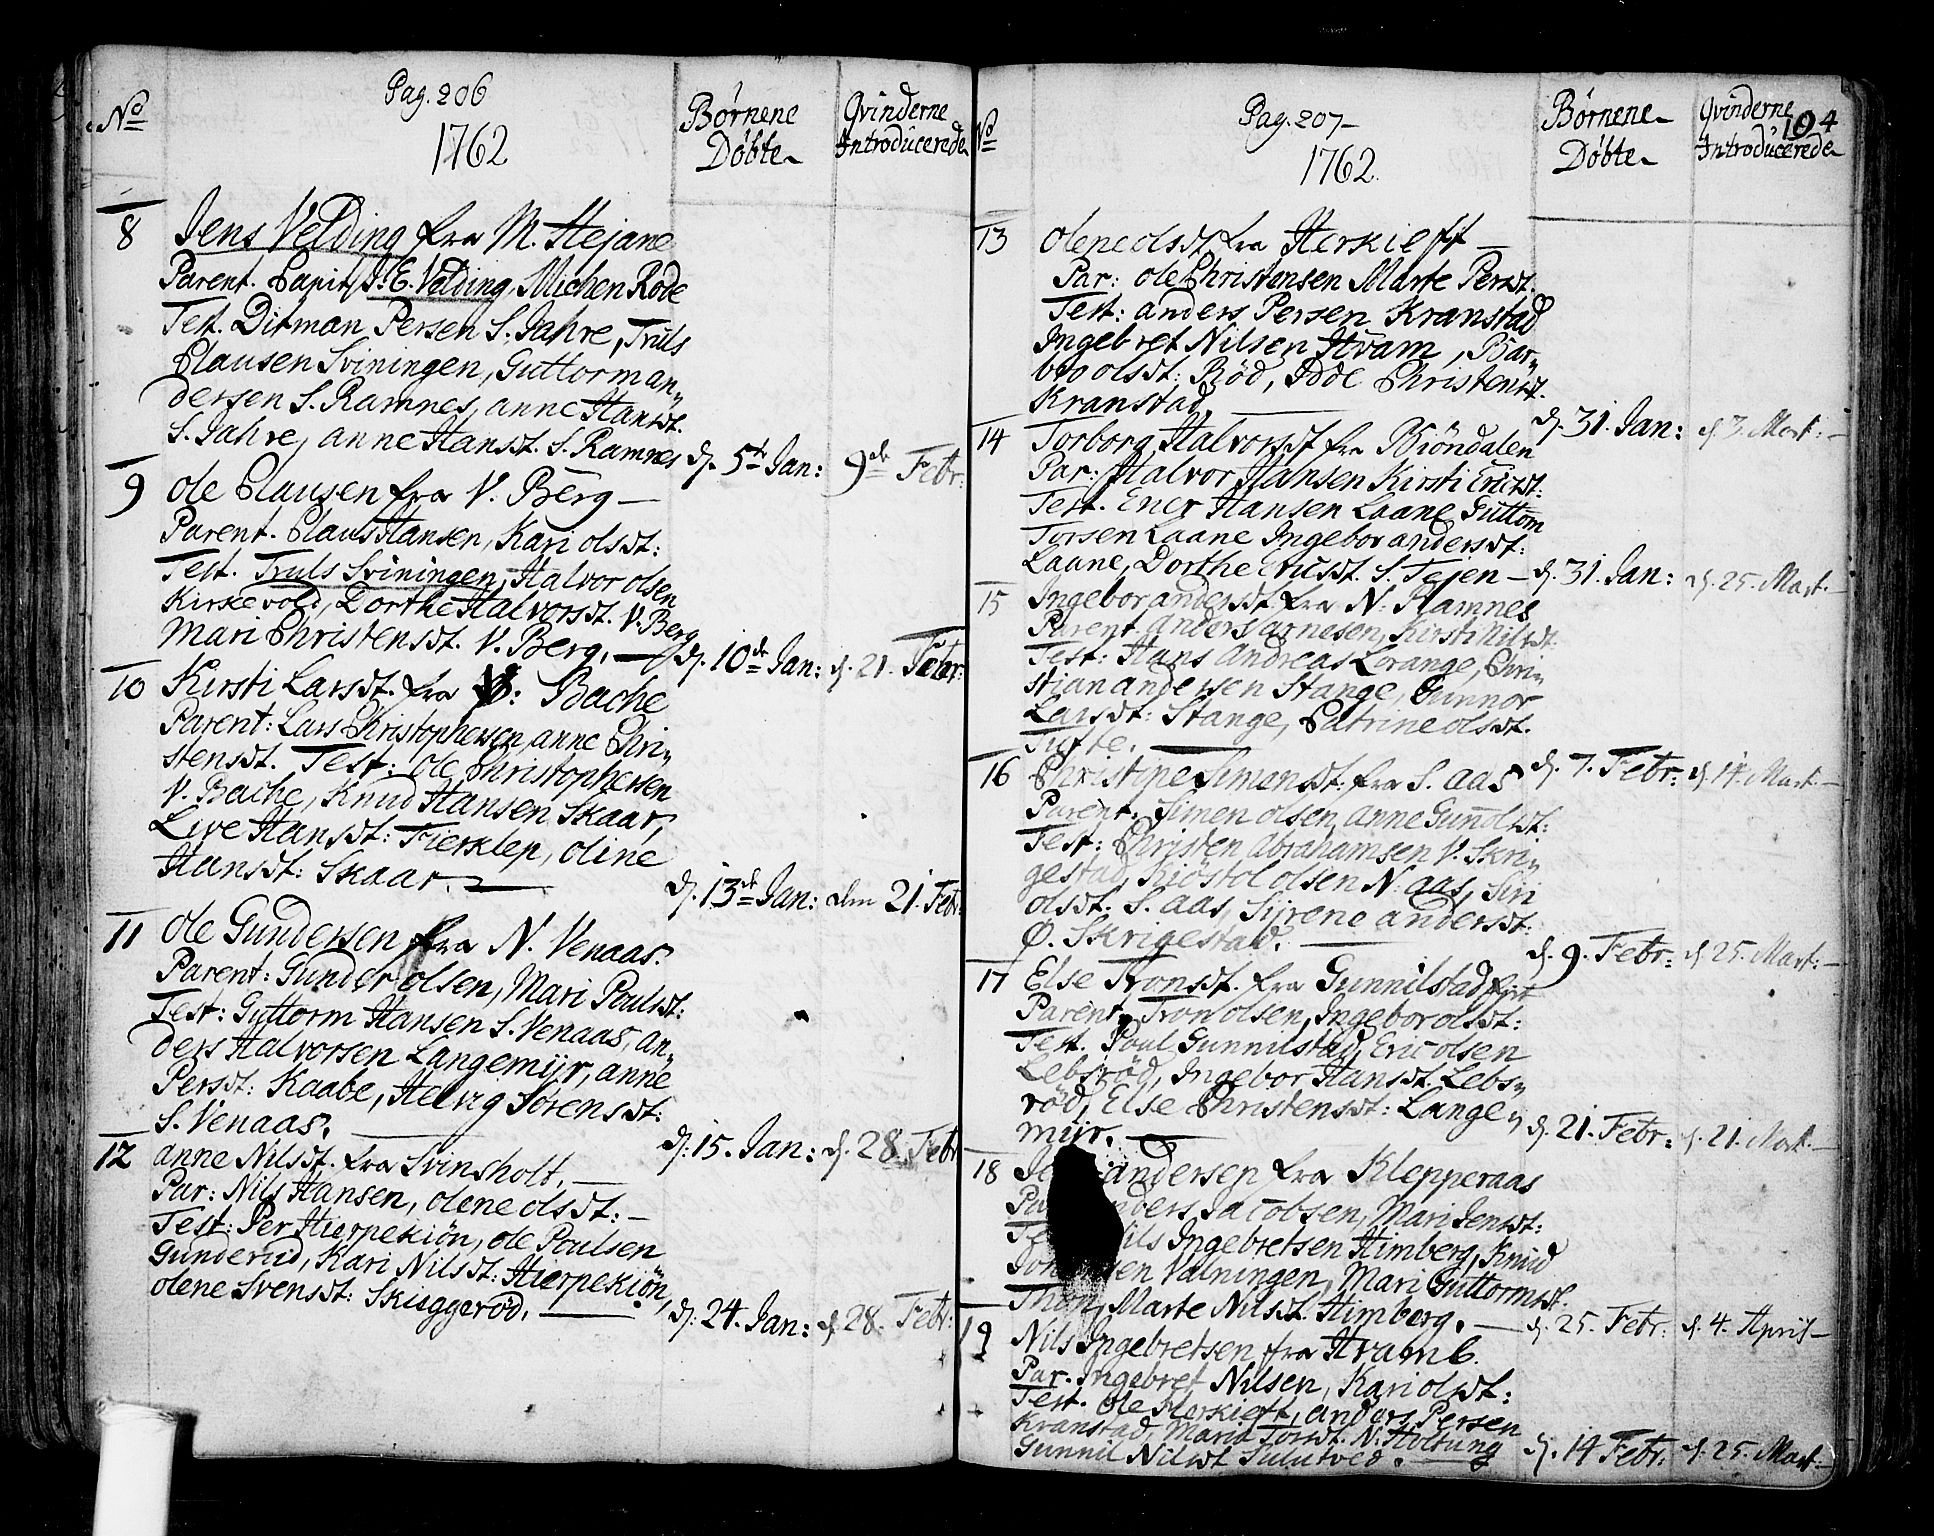 Pag. 206
No 1762 Børnene Døbte Qvinderne Introducerede
8 Jens Velding fra M. Hejane
Parent. Capit. J. E. Velding, Michen Rode
Test. Ditman Persen S. Jahre, Truls
Clausen Sviningen, Guttorm an„
dersen S. Ramnes, anne Hansdt.
S. Jahre, anne Hansdt. S. Ramnes d. 5t Jan: 9de Febr:
9 Ole Clausen fra V. Berg
Parent. Claus Hansen, Kari olsdt:
Test. Truls Sviningen, Halvor olsen
Kirkevold, Dorthe Halvorsdt. V. Berg
Mari Christensdt. V. Berg. d. 10de Jan: d. 21. Febr:
10 Kirsti Larsdt. fra V: Bache
Parent: Lars Christophersen, anne Chri„
stensdt. Test: ole Christophersen
V. Bache, Knud Hansen Skaar,
Live Hansdt: Fiersklep, oline
Hansdt: Skaar. d. 13de Jan: den 21. Febr:
11 Ole Gundersen fra N. Venaas.
Parent: Gunder olsen, Mari Poulsdt:
Test: Guttorm Hansen S. Venaas, an„
ders Halvorsen Langemyr, anne
Persdt: Kaabe, Helvig Sørensdt:
S. Venaas. d. 15. Jan: d. 28. Febr
12 anne Nilsdt. fra Svinsholt.
Par: Nils Hansen, olene olsdt:
Test: Per Hierpekiøn, ole Poulsen
Gunderud, Kari Nilsdt: Hierpekiøn,
olene Svensdt: Skuggerød. d. 24. Jan: d. 28. Febr:
Pag. 207 104
No 1762. Børnene Døbte Qvinderne Introducerede
13 olene olsdt. fra Herkieft
Par: ole Christensen Marte Persdt.
Test: anders Persen Kranstad
Ingebret Nilsen Hvam, Bar„
bro olsdt: Rød, Christensdt.
Kranstad. d. 31. Jan: d. 3. Mart:
14 Torborg Halvorsdt fra Biöndalen
Par: Halvor Hansen Kirsti Ericsdt:
Test. Ener Hansen Laane Guttom
Torsen Laane Ingebor andersdt:
Laane, Dorthe Ericsdt. S. Tejen d. 31. Jan: d. 25. Mart.
15 Ingebor andersdt. fra N. Ramnes
Parent anders arnesen, Kirsti Nilsdt:
Test: Hans Andreas Lorange, Chri„
stian andersen Stange, Gunnor
Larsdt: Stange, Catrine olsdt.
Tufte. d. 7. Febr: d. 14. Mart:
16 Christine Simensdt: fra S. aas
Parent. Simen olsen, anne Gun̄olsdt:
Test: Christen Abrahamsen V. Skri„
gestad, Kiöstol olsen N. aas, Siri
olsdt. S. aas, Sirene andersdt:
Ø. Skrigestad. d. 9. Febr: d. 25. Mart:
17 Else Tronsdt. fra Gunnilstad
Parent, Tron olsen, Ingebor olsdt:
Test. Poul Gunnilstad, Eric olsen
Lebsrød, Ingebor Hansdt. Lebs„
rød, Else Christensdt: Lange„
myr. d. 21. Febr: d. 21. Mart.
18 andersen fra Klepperaas
Jacobsen, Mari Jensdt:
Ingebretsen Himberg, Knud
Valningen, Mari Guttormsdt.
Thon, Marte Nilsdt. Himberg. d. 25. Febr: d. 4. April
19 Nils Ingebretsen fra Hvam 6.
Par. Ingebret Nilsen, Kari olsdt:
Test. ole Herkieft, anders Persen
Kranstad, Maria Torsdt. N. Holtung
Gunnil Nilsdt Sulutved. d. 14 Febr: d. 25. Mart: